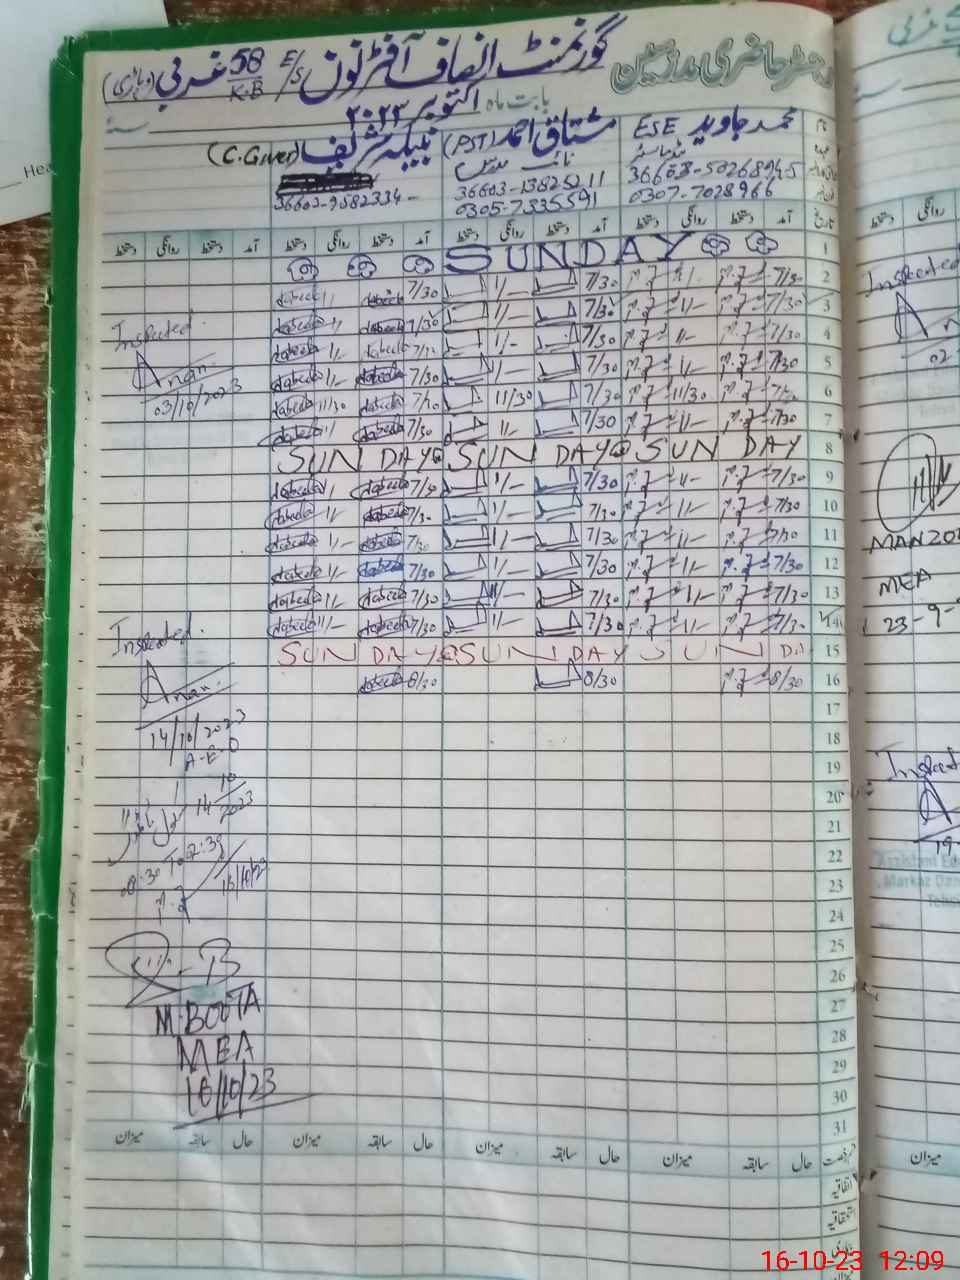 رجسٹر حاضری مدرسین گورنمنٹ انصاف آفٹرنون E/S 58/K.B غربی (وہاڑی)
بابت ماہ اکتوبر ۲۰۲۳
نام محمد جاوید ESE مشتاق احمد (PST) نبیلہ شریف (C.Giver)
ہیڈ ماسٹر نائب مدرس
36603-5026894-5 36603-1382521-1 36603-9582334-
0307-7028966 0305-7335591
تاریخ آمد دستخط روانگی دستخط آمد دستخط روانگی دستخط آمد دستخط روانگی دستخط آمد دستخط روانگی دستخط
1 SUNDAY
2 7/30 1/- 7/30 1/- 7/30 Nabeela 1/- Nabeela
3 7/30 11/- 7/30 1/- 7/30 Nabeela 1/- Nabeela
4 7/30 11/- 7/30 1/- 7/30 Nabeela 1/- Nabeela
5 7/30 1/- 7/30 1/- 7/30 Nabeela 1/- Nabeela
6 7/30 11/30 7/30 11/30 7/30 Nabeela 11/30 Nabeela
7 7/30 11/- 7/30 1/- 7/30 Nabeela 1/- Nabeela
8 SUNDAY SUNDAY SUNDAY
9 7/30 1/- 7/30 1/- 7/30 Nabeela 1/- Nabeela
10 7/30 1/- 7/30 1/- 7/30 Nabeela 1/- Nabeela
11 7/30 1/- 7/30 1/- 7/30 Nabeela 1/- Nabeela
12 7/30 1/- 7/30 1/- 7/30 Nabeela 1/- Nabeela
13 7/30 1/- 7/30 7/30 Nabeela 1/- Nabeela
14 7/30 1/- 7/30 1/- 7/30 Nabeela 1/- Nabeela
15 SUNDAY SUNDAY SUN D
16 8/30 8/30 8/30 Nabeela
17
18
19
20
21
22
23
24
25
26
27
28
29
30
31
Inspected.
03/10/2023
Inspected.
14/10/2023
A.E.O
14/10/2023
08:30 To 2:30
16/10/23
M.BOOTA
MEA
16/10/23
حال سابقہ میزان حال سابقہ میزان حال سابقہ میزان حال سابقہ میزان
اتفاقیہ
استحقاقیہ
Inspected
02-
MANZOO
MEA
23-9-
Inspect
19-
Assistant Edu
Markaz Dan
Tehs
میزان
Hea
16-10-23 12:09